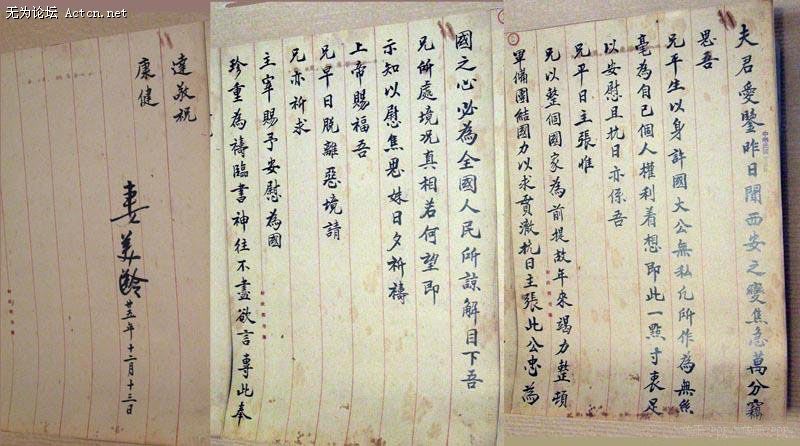 无为论坛 Actcn.net
夫君愛鑒昨日聞西安之變焦急萬分竊
思吾
兄平生以身許國大公無私凡所作為無絲
毫為自己個人權利着想即此一點寸衷足
以安慰且抗日亦係吾
兄平日主張惟
兄以整個國家為前提故年來竭力整頓
軍備團結國力以求貫澈抗日主張此公忠為
國之心必為全國人民所諒解目下吾
兄所處境況真相若何望即
示知以慰焦思妹日夕祈禱
上帝賜福吾
兄早日脫離惡境請
兄亦祈求
主宰賜予安慰為國
珍重為禱臨書神往不盡欲言專此奉
達敬祝
康健
妻美齡
廿五年十二月十三日